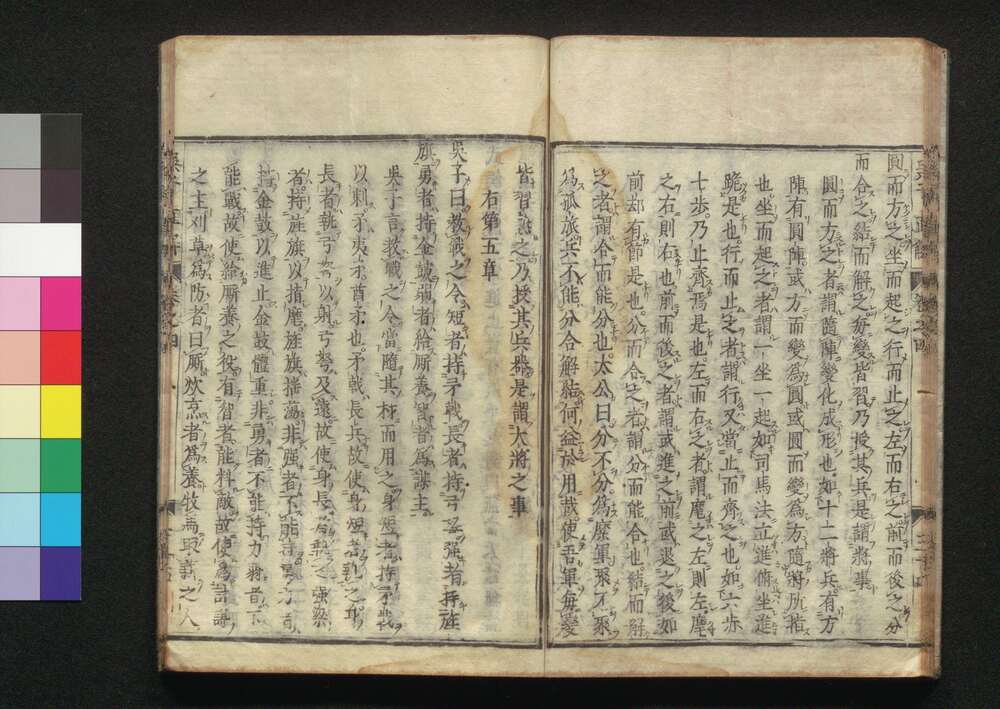 圓而方之坐而起之行而止之左而右之前而後之分
而合之結而解之每變皆習乃授其兵是謂將事
圓而方之者謂隨陣變化成形也如十二將兵有方
陣有圓陣或方而變為圓或圓而變為方隨將所指
也坐而起之者謂一坐一起如司馬法立進俯坐進
跪是也行而止之者謂行又當止而齊之也如六步
七步乃止齊焉是也左而右之者謂麾之左則左麾
之右則右也前而後之者謂或進之前或退之後如
前却有節是也分而合之者謂分而能合也結而解
之者謂合而能分也太公曰分不分為縻軍聚不聚
為孤旅兵不能分合解結何益於用哉使吾軍每變
皆習熟之乃授其兵器是謂大將之事
右第五章
吳子曰教戰之令短者持矛戟長者持弓弩強者持旌
旗勇者持金鼓弱者給厮養智者為謀主
吳子言教戰之令當隨其材而用之身短者持矛戟
以刺矛夷矛酋矛也矛戟長兵故使身短者執之
長者執弓弩以射弓弩及遠故使身長者執之強梁
者持旌旗以指麾旌旗搖蕩非强者不能
持金鼓以進止金鼓體重非勇者不能持力
能戰故使給厮養之役有智者能料敵故使為謀
之主刈草為防者曰厮炊烹者為養牧馬之人
卷之四